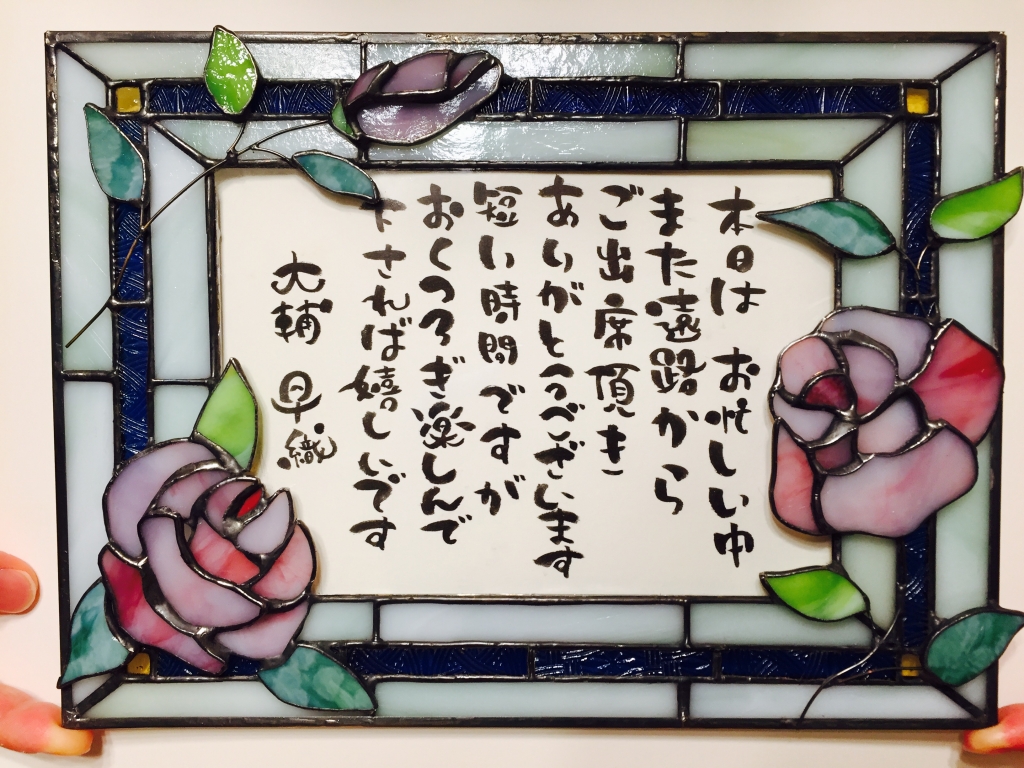 本日は お忙しい中
また遠路から
ご出席頂き
ありがとうございます
短い時間ですが
おくつろぎ楽しんで
下されば嬉しいです
大輔 早織